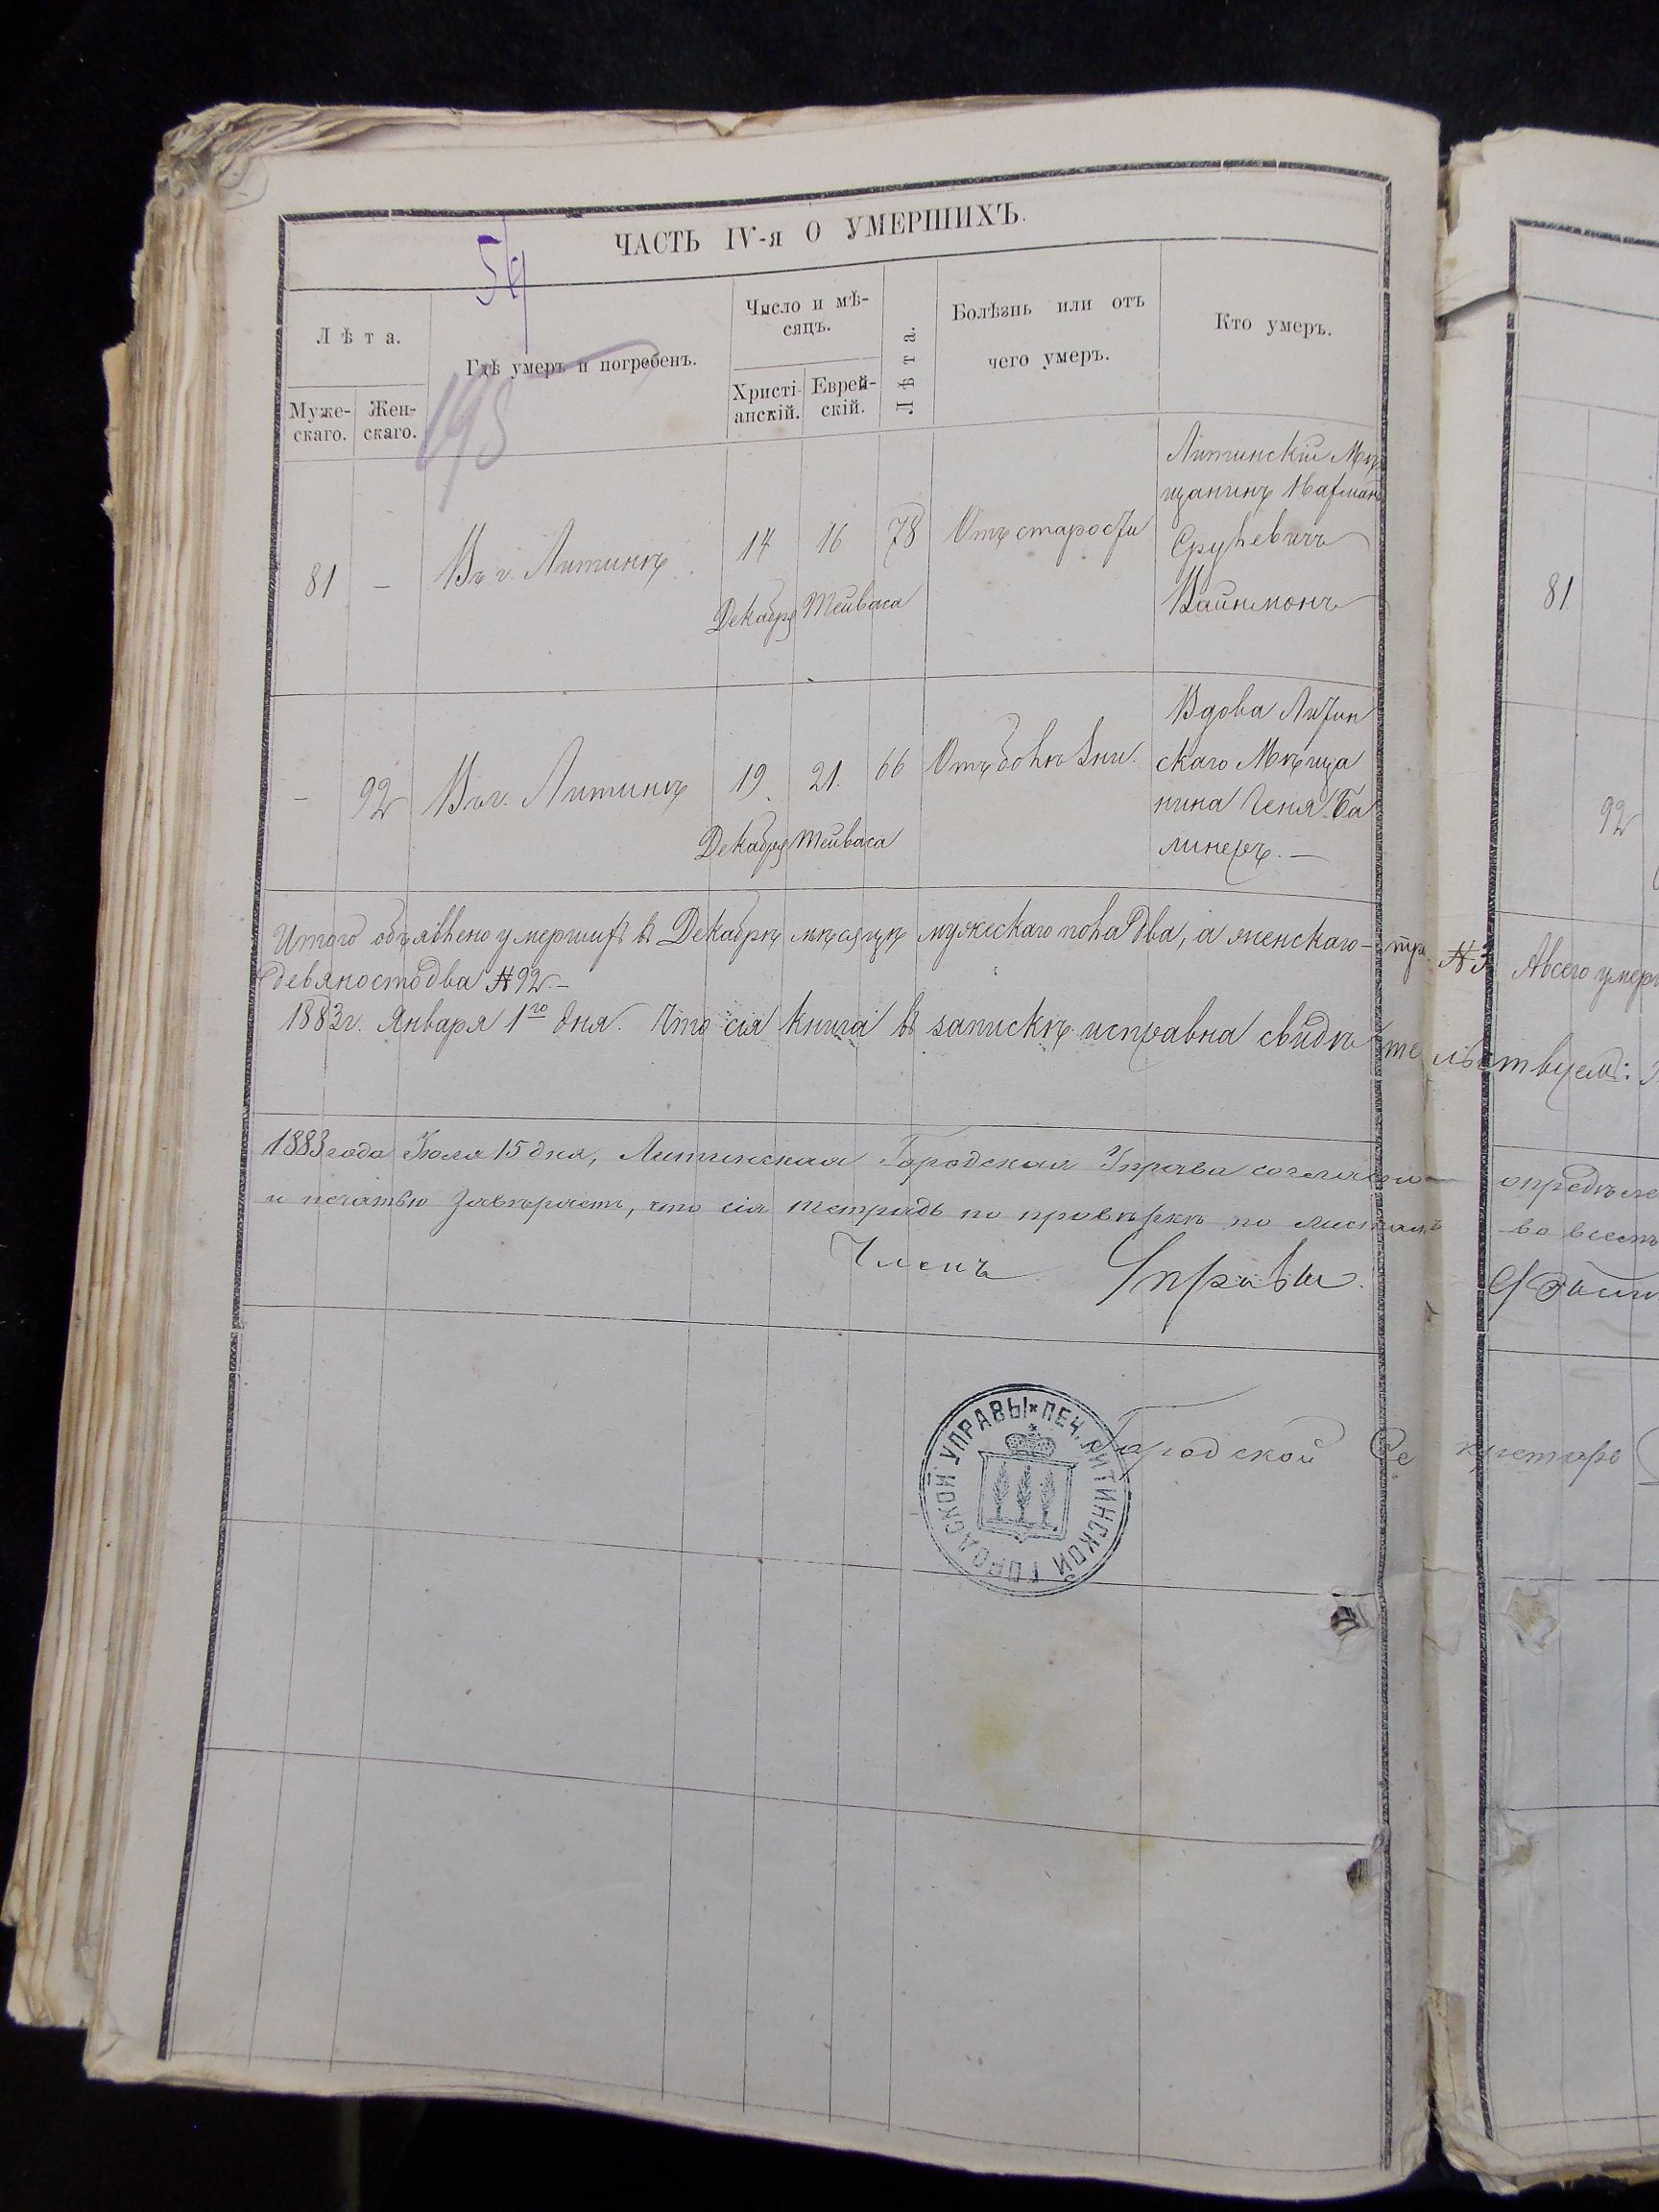 ЧАСТЬ IV-я О УМЕРШИХЪ.
54
198
Лѣта.
Муже-
скаго.
Жен-
скаго.
Гдѣ умеръ и погребенъ.
Число и мѣ-
сяцъ.
Христі-
анскій.
Еврей-
скій.
Лѣта.
Болѣзнь или отъ
чего умеръ.
Кто умеръ.
81
-
Въ г. Литинѣ
14
Декабря
16
Тейваса
78
Отъ старости
Литинскій Мѣ
щанинъ
Срулевичъ
-
92
Въ г. Литинѣ
19
Декабря
21.
Тейваса
66
Отъ болѣзни.
Вдова Литин
скаго Мѣща
нина Геня Ба
линеръ. —
Итого объявлено умершихъ въ Декабрѣ мѣсяцѣ мужескаго пола два, а женскаго - три № 3 А всего умер
девяносто два № 92. -
1883 г. Января 1го дня. Что сія книга въ запискѣ исправна свидѣтельствуемъ:
1883 года Іюля 15 дня, Литинская Городская Управа согласно опредѣле
и печатью завѣряетъ, что сія тетрадь по провѣркѣ по листамъ во всемъ
Членъ Управы
Городской Секретарь
ПЕЧ. ЛИТИНСКОЙ ГОРОДСКОЙ УПРАВЫ *
81
92